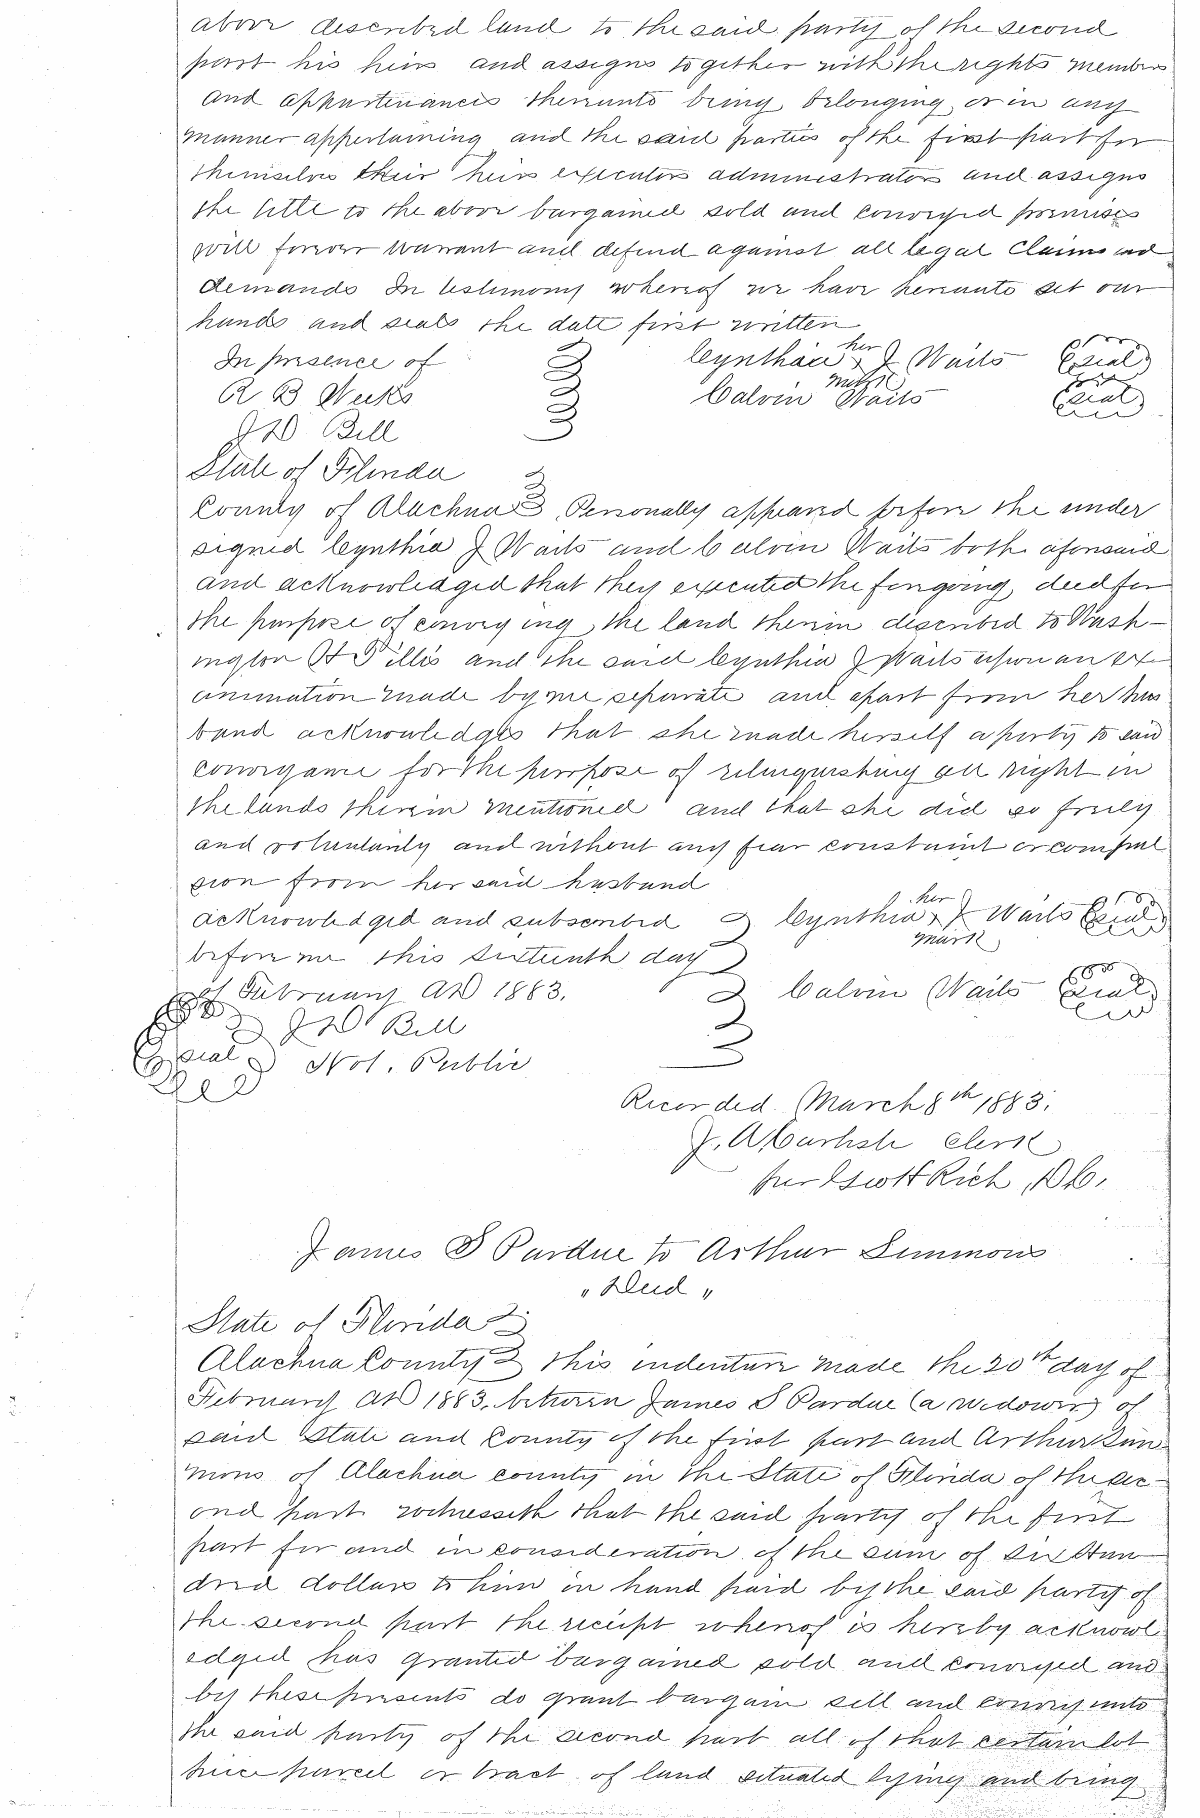 above described land to the said party of the second
part his heirs and assigns together with the rights members
and appurtenances thereunto being belonging or in any
manner appertaining and the said parties of the first part for
themselves their heirs executors administrators and assigns
the title to the above bargained sold and conveyed premises
will forever warrant and defend against all legal claims and
demands In testimony whereof we have hereunto set our
hands and seals the date first written
In presence of Cynthia her x mark J Waits Seal
R B Weeks Calvin Waits Seal
J W Bill
State of Florida
County of Alachua Personally appeared before the under
signed Cynthia J Waits and Calvin Waits both aforesaid
and acknowledged that they executed the foregoing deed for
the purpose of conveying the land therein described to Wash-
ington H Tillis and the said Cynthia J Waits upon an ex
amination made by me separate and apart from her hus
band acknowledges that she made herself a party to said
conveyance for the purpose of relinquishing all right in
the lands therein mentioned and that she did so freely
and voluntarily and without any fear constraint or compul
sion from her said husband
acknowledged and subscribed Cynthia her x mark J Waits Seal
before me this Sixteenth day
of February AD 1883. Calvin Waits Seal
J W Bill
Seal Not. Public
Recorded March 8th 1883.
J. A Carlisle Clerk
per Scott Rich, D C.
James S Pardue to Arthur Simmons
" Deed "
State of Florida
Alachua County this indenture made the 20th day of
February AD 1883. between James S Pardue (a widower) of
said State and County of the first part and Arthur Sim
mons of Alachua county in the State of Florida of the sec-
ond part witnesseth that the said party of the first
part for and in consideration of the sum of Six Hun
dred dollars to him in hand paid by the said party of
the second part the receipt whereof is hereby acknowl
edged has granted bargained sold and conveyed and
by these presents do grant bargain sell and convey unto
the said party of the second part all of that certain lot
piece parcel or tract of land situated lying and being